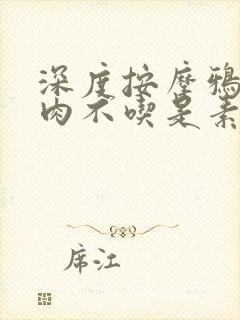 深度按摩鸦
肉不喫是素
席江